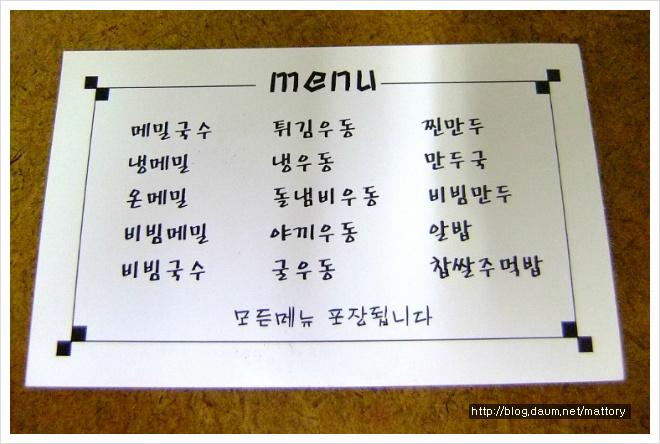 menu
메밀국수 튀김우동 찐만두
냉메밀 냉우동 만두국
온메밀 돌냄비우동 비빔만두
비빔메밀 야끼우동 알밥
비빔국수 굴우동 찹쌀주먹밥
모든메뉴 포장됩니다
http://blog.daum.net/mattory